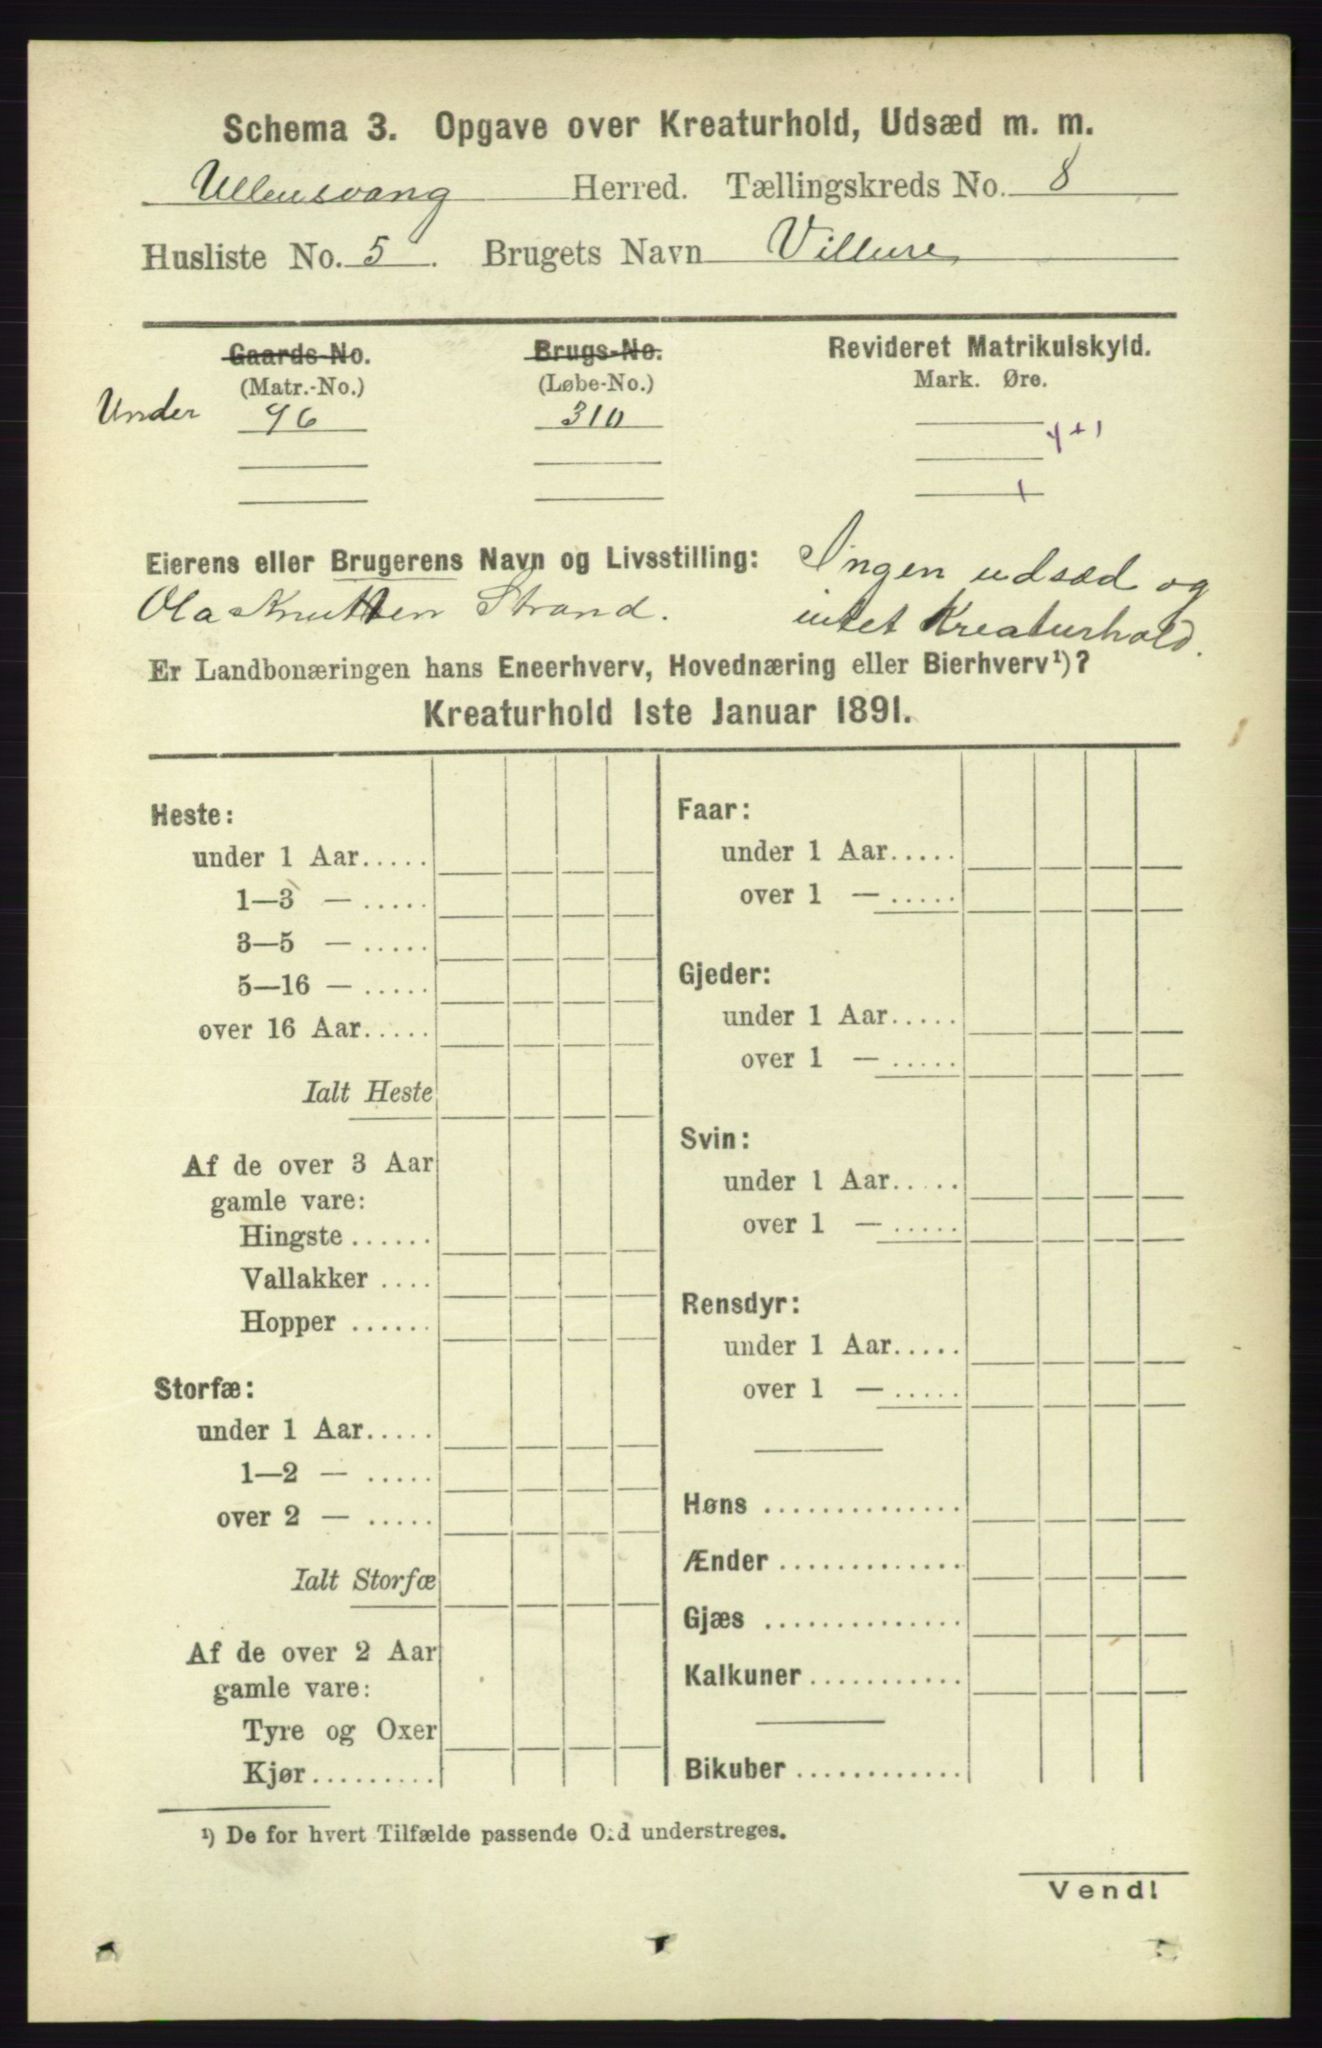 Schema 3. Opgave over Kreaturhold, Udsæd m. m.
Ullensvang Herred. Tællingskreds No. 8
Husliste No. 5. Brugets Navn Villure
Gaards-No. Brugs-No. Revideret Matrikulskyld.
(Matr.-No.) (Løbe-No.) Mark. Øre.
Under 96 310
4+1
Eierens eller Brugerens Navn og Livsstilling: Ingen udsæd og
Ola Knutsen Strand. intet Kreaturhold.
Er Landbonæringen hans Eneerhverv, Hovednæring eller Bierhverv¹)?
Kreaturhold 1ste Januar 1891.
Heste:
under 1 Aar.....
1—3 — .....
3—5 — .....
5—16 — .....
over 16 Aar.....
Ialt Heste
Af de over 3 Aar
gamle vare:
Hingste......
Vallakker ....
Hopper ......
Storfæ:
under 1 Aar.....
1—2 — .....
over 2 — .....
Ialt Storfæ
Af de over 2 Aar
gamle vare:
Tyre og Oxer
Kjør.........
Faar:
under 1 Aar.....
over 1 — .....
Gjeder:
under 1 Aar.....
over 1 — .....
Svin:
under 1 Aar.....
over 1 — .....
Rensdyr:
under 1 Aar.....
over 1 — .....
Høns ..............
Ænder .............
Gjæs ..............
Kalkuner...........
Bikuber ............
¹) De for hvert Tilfælde passende Ord understreges.
Vend!